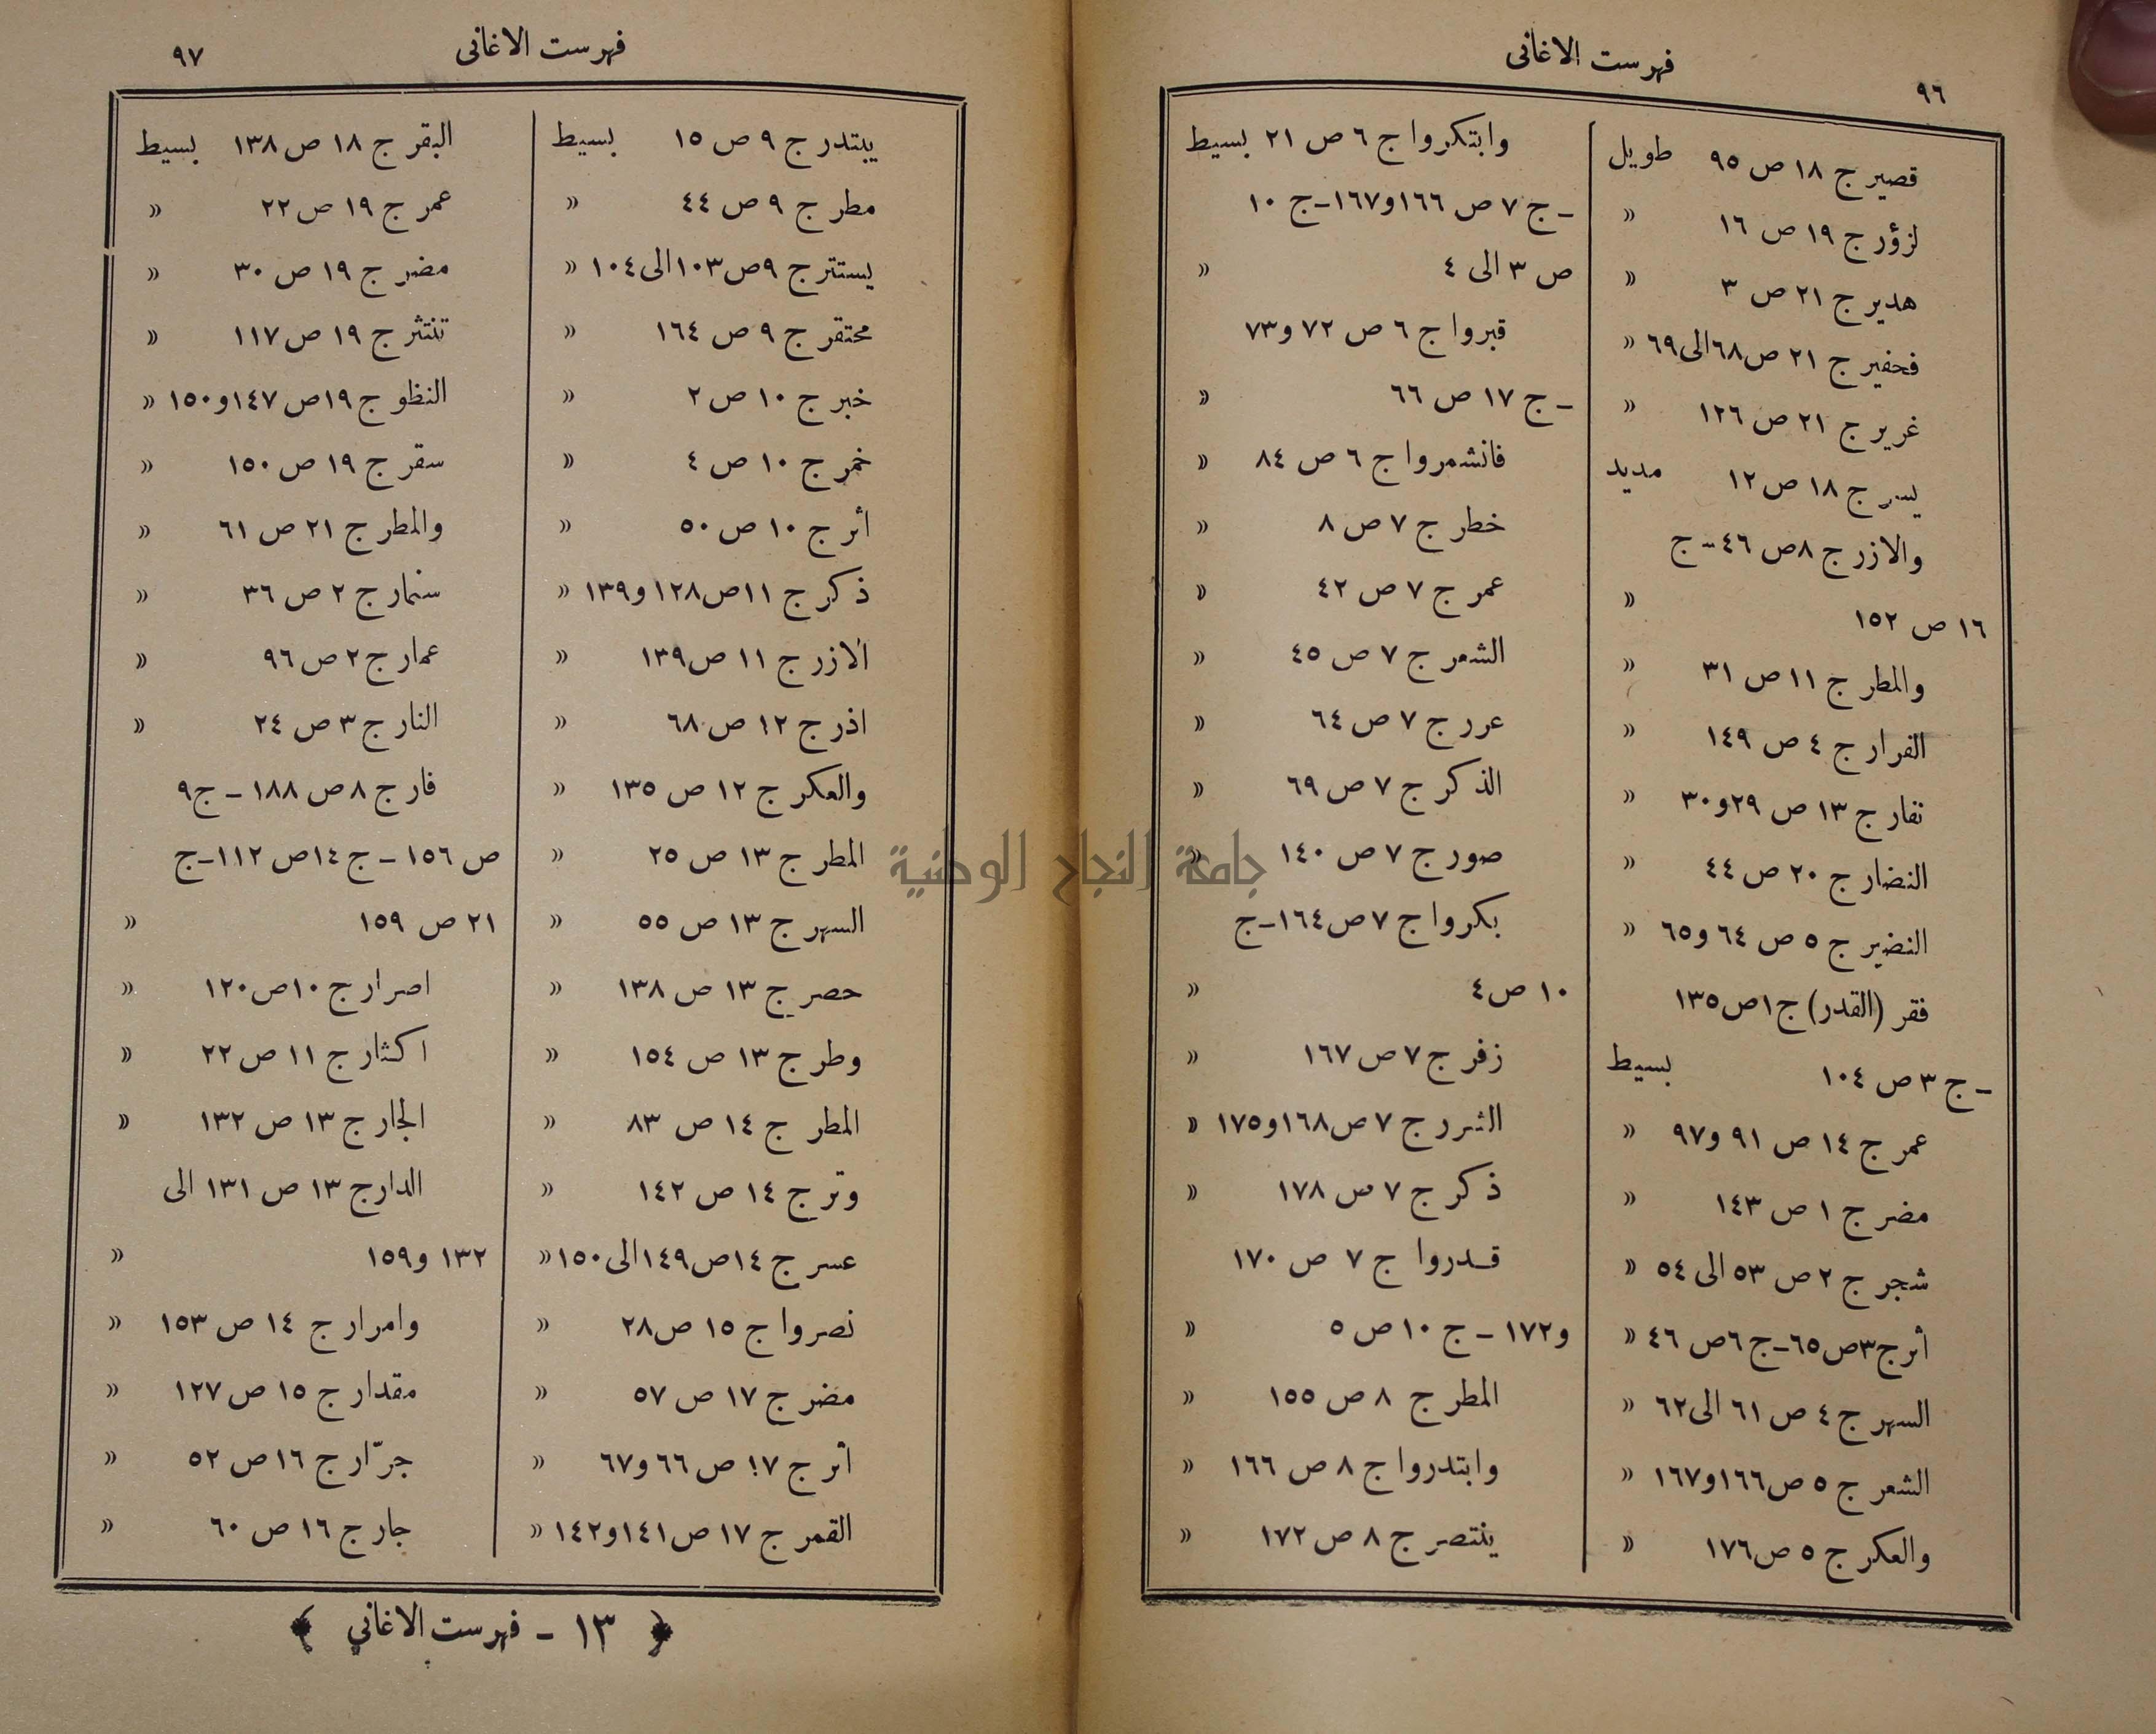 ٩٦
فهرست الاغانى
قصير ج ١٨ ص ٩٥ طويل
لزؤر ج ١٩ ص ١٦ »
هدير ج ٢١ ص ٣ »
فحفير ج ٢١ ص٦٨الى٦٩ »
غرير ج ٢١ ص ١٢٦ »
يسر ج ١٨ ص١٢ مديد
والازر ج ٨ص ٤٦ - ج
١٦ ص ١٥٢ »
والمطر ج ١١ ص ٣١ »
الفرار ج ٤ ص ١٤٩ »
تفار ج ١٣ ص ٢٩و٣٠ »
النضار ج ٢٠ ص ٤٤ »
النضير ج ٥ ص ٦٤ و٦٥ »
فقر (القدر) ج١ص١٣٥
ـ ج ٣ ص ١٠٤ بسيط
عمر ج ١٤ ص ٩١ و٩٧ »
مضر ج ١ ص ١٤٣ »
شجر ج ٢ ص ٥٣ الى ٥٤ »
أثر ج٣ص٦٥ـ ج ٦ص ٤٦ »
السهر ج ٤ ص ٦١ الى٦٢ »
الشعر ج ٥ ص١٦٦و١٦٧ »
والعكر ج ٥ ص١٧٦ »
وابتكروا ج ٦ ص ٢١ بسيط
ـ ج ٧ ص ١٦٦و١٦٧ـ ج ١٠
ص ٣ الى ٤ »
قبروا ج ٦ ص ٧٢ و٧٣
ـ ج ١٧ ص ٦٦ »
فانشمروا ج ٦ ص ٨٤ »
خطر ج ٧ ص ٨ »
عمر ج ٧ ص ٤٢ »
الشعر ج ٧ ص ٤٥ »
عرر ج ٧ ص ٦٤ »
الذكر ج ٧ ص ٦٩ »
صور ج ٧ ص ١٤٠ »
بكروا ج ٧ ص١٦٤ـ ج
١٠ ص٤ »
زفر ج ٧ ص ١٦٧ »
الشرر ج ٧ ص١٦٨و١٧٥ »
ذكر ج ٧ ص ١٧٨ »
قدروا ج ٧ ص ١٧٠
و١٧٢ ـ ج ١٠ ص ٥ »
المطر ج ٨ ص ١٥٥ »
وابتدروا ج ٨ ص ١٦٦ »
ينتصر ج ٨ ص ١٧٢ »
جامعة النجاح الوطنية
فهرست الاغانى
٩٧
يبتدر ج ٩ ص ١٥ بسيط
مطر ج ٩ ص ٤٤ »
يستتر ج ٩ص١٠٣الى١٠٤ »
محتقر ج ٩ ص ١٦٤ »
خبر ج ١٠ ص ٢ »
خمر ج ١٠ ص ٤ »
أثر ج ١٠ ص ٥٠ »
ذكر ج ١١ص١٢٨ و١٣٩ »
الازر ج ١١ ص١٣٩ »
اذر ج ١٢ ص ٦٨ »
والعكر ج ١٢ ص ١٣٥ »
المطر ج ١٣ ص ٢٥ »
السهر ج ١٣ ص ٥٥ »
حصر ج ١٣ ص ١٣٨ »
وطر ج ١٣ ص ١٥٤ »
المطر ج ١٤ ص ٨٣ »
وتر ج ١٤ ص ١٤٢ »
عسر ج ١٤ص١٤٩الى١٥٠ »
نصروا ج ١٥ ص٢٨ »
مضر ج ١٧ ص ٥٧ »
أثر ج ١٧ ص ٦٦ و٦٧ »
القمر ج ١٧ ص١٤١و١٤٢ »
البقر ج ١٨ ص ١٣٨ بسيط
عمر ج ١٩ ص ٢٢ »
مضر ج ١٩ ص ٣٠ »
تنتثر ج ١٩ ص ١١٧ »
النظو ج ١٩ص ١٤٧و١٥٠ »
سقر ج ١٩ ص ١٥٠ »
والمطر ج ٢١ ص ٦١ »
سنمار ج ٢ ص ٣٦ »
عمار ج ٢ ص ٩٦ »
النار ج ٣ ص ٢٤ »
فار ج ٨ ص ١٨٨ ـ ج٩
ص ١٥٦ ـ ج ١٤ص ١١٢ـ ج
٢١ ص ١٥٩ »
اصرار ج ١٠ص١٢٠ »
اكثار ج ١١ ص ٢٢ »
الجار ج ١٣ ص ١٣٢ »
الدار ج ١٣ ص ١٣١ الى
١٣٢ و١٥٩ »
وامرار ج ١٤ ص ١٥٣ »
مقدار ج ١٥ ص ١٢٧ »
جرّار ج ١٦ ص ٥٢ »
جار ج ١٦ ص ٦٠ »
﴿ ١٣ - فهرست الاغاني ﴾